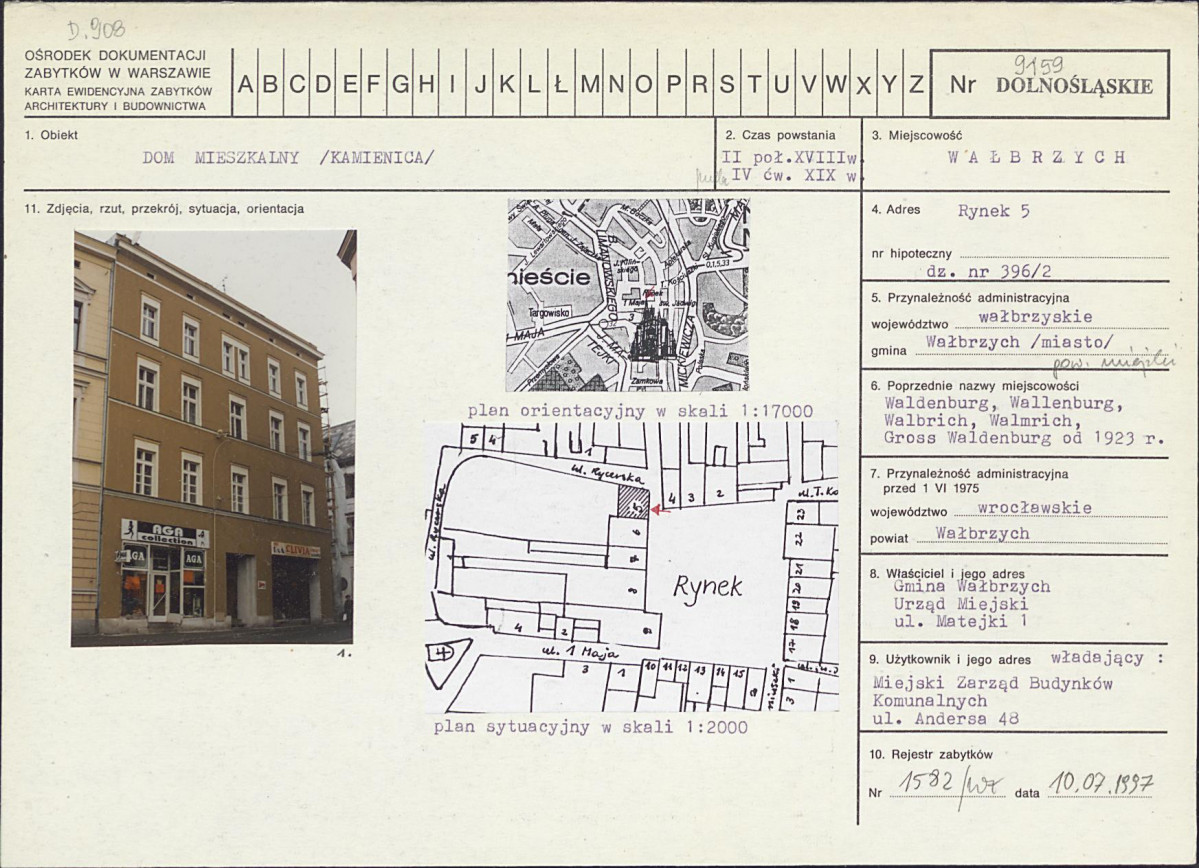 D.908
OŚRODEK DOKUMENTACJI
ZABYTKÓW W WARSZAWIE
KARTA EWIDENCYJNA ZABYTKÓW
ARCHITEKTURY I BUDOWNICTWA
A B C D E F G H I J K L Ł M N O P R S T U V W X Y Z
Nr 9159 DOLNOŚLĄSKIE
1. Obiekt
DOM MIESZKALNY /KAMIENICA/
2. Czas powstania
II poł.XVIIIw.
IV ćw. XIX w
3. Miejscowość
WAŁBRZYCH
11. Zdjęcia, rzut, przekrój, sytuacja, orientacja
AGA
collection
AGA
AGA
CLIVIA
1.
mieście
Targowisko
LIMANOWSKIEGO
MICKIEWICZA
Zamkowa
plan orientacyjny w skali 1:17000
5 4
1
ul. Rycerska
ul. Rycerska
4 3 2
5
6
7
8
9
Rynek
23
22
21
20
19
18
17
4 2
ul. 1 Maja
3 1 10 11 12 13 14 15
1
3
plan sytuacyjny w skali 1:2000
4. Adres Rynek 5
nr hipoteczny
dz. nr 396/2
5. Przynależność administracyjna
województwo wałbrzyskie
gmina Wałbrzych /miasto/
pow. miejski
6. Poprzednie nazwy miejscowości
Waldenburg, Wallenburg,
Walbrich, Walmrich,
Gross Waldenburg od 1923 r.
7. Przynależność administracyjna
przed 1 VI 1975
województwo wrocławskie
powiat Wałbrzych
8. Właściciel i jego adres
Gmina Wałbrzych
Urząd Miejski
ul. Matejki 1
9. Użytkownik i jego adres władający :
Miejski Zarząd Budynków
Komunalnych
ul. Andersa 48
10. Rejestr zabytków
Nr 1582/wz data 10.07.1997